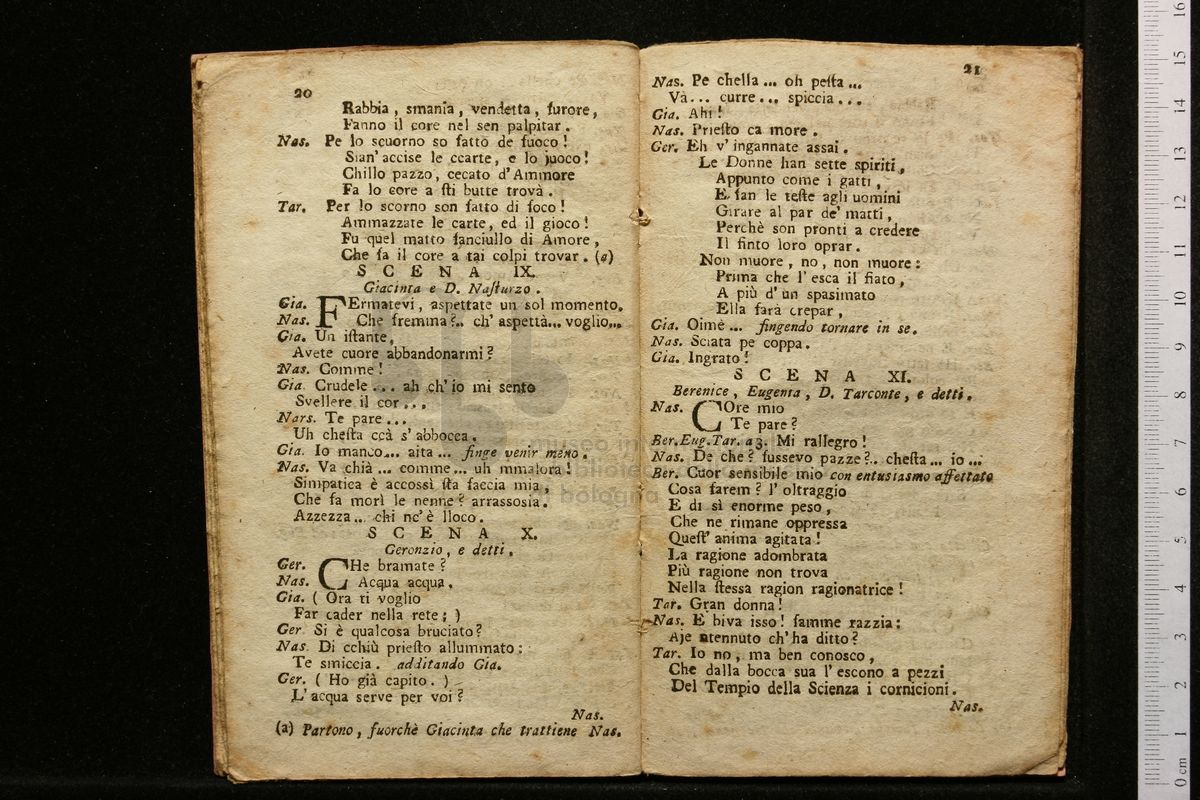 20
Rabbia, smania, vendetta, furore,
Fanno il core nel sen palpitar.
Nas. Pe lo scuorno so fatto de fuoco!
Sian' accise le ccarte, e lo juoco!
Chillo pazzo, cecato d'Ammore
Fa lo core a sti butte trovà.
Tar. Per lo scorno son fatto di foco!
Ammazzate le carte, ed il gioco!
Fu quel matto fanciullo di Amore,
Che fa il core a tai colpi trovar. (a)
SCENA IX.
Giacinta e D. Nasturzo.
Gia. FErmatevi, aspettate un sol momento.
Nas. Che fremma?.. ch' aspettà... voglio...
Gia. Un istante,
Avete cuore abbandonarmi?
Nas. Comme!
Gia. Crudele... ah ch' io mi sento
Svellere il cor...
Nars. Te pare...
Uh chesta ccà s' abbocca.
Gia. Io manco... aita... finge venir meno.
Nas. Va chià... comme... uh mmalora!
Simpatica è accossì sta faccia mia,
Che fa morì le nenne? arrassosia.
Azzezza... chi nc' è lloco.
SCENA X.
Geronzio, e detti.
Ger. CHe bramate?
Nas. Acqua acqua.
Gia. (Ora ti voglio
Far cader nella rete;)
Ger. Si è qualcosa bruciato?
Nas. Di cchiù priesto allummato:
Te smiccia. additando Gia.
Ger. (Ho già capito.)
L' acqua serve per voi?
Nas.
(a) Partono, fuorchè Giacinta che trattiene Nas.
21
Nas. Pe chella... oh pesta...
Và... curre... spiccia...
Gia. Ahi!
Nas. Priesto ca more.
Ger. Eh v' ingannate assai.
Le Donne han sette spiriti,
Appunto come i gatti,
E fan le teste agli uomini
Girare al par de' matti,
Perchè son pronti a credere
Il finto loro oprar.
Non muore, no, non muore:
Prima che l' esca il fiato,
A più d' un spasimato
Ella farà crepar,
Gia. Oimè... fingendo tornare in se.
Nas. Sciata pe coppa.
Gia. Ingrato!
SCENA XI.
Berenice, Eugenia, D. Tarconte, e detti.
Nas. COre mio
Te pare?
Ber. Eug. Tar. a 3. Mi rallegro!
Nas. De che? fussevo pazze?.. chesta... io...
Ber. Cuor sensibile mio con entusiasmo affettato
Cosa farem? l' oltraggio
E di sì enorme peso,
Che ne rimane oppressa
Quest' anima agitata!
La ragione adombrata
Più ragione non trova
Nella stessa ragion ragionatrice!
Tar. Gran donna!
Nas. E biva isso! famme razzia:
Aje ntennuto ch' ha ditto?
Tar. Io no, ma ben conosco,
Che dalla bocca sua l' escono a pezzi
Del Tempio della Scienza i cornicioni.
Nas.
museo
di bologna
0 cm 1 2 3 4 5 6 7 8 9 10 11 12 13 14 15 16